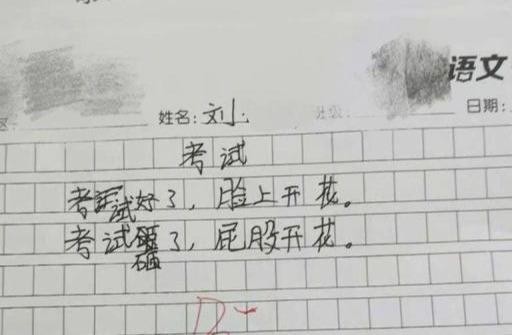 语文
姓名:刘小 班级: 日期:
考试
考试好了，脸上开花。
考试砸了，屁股开花。